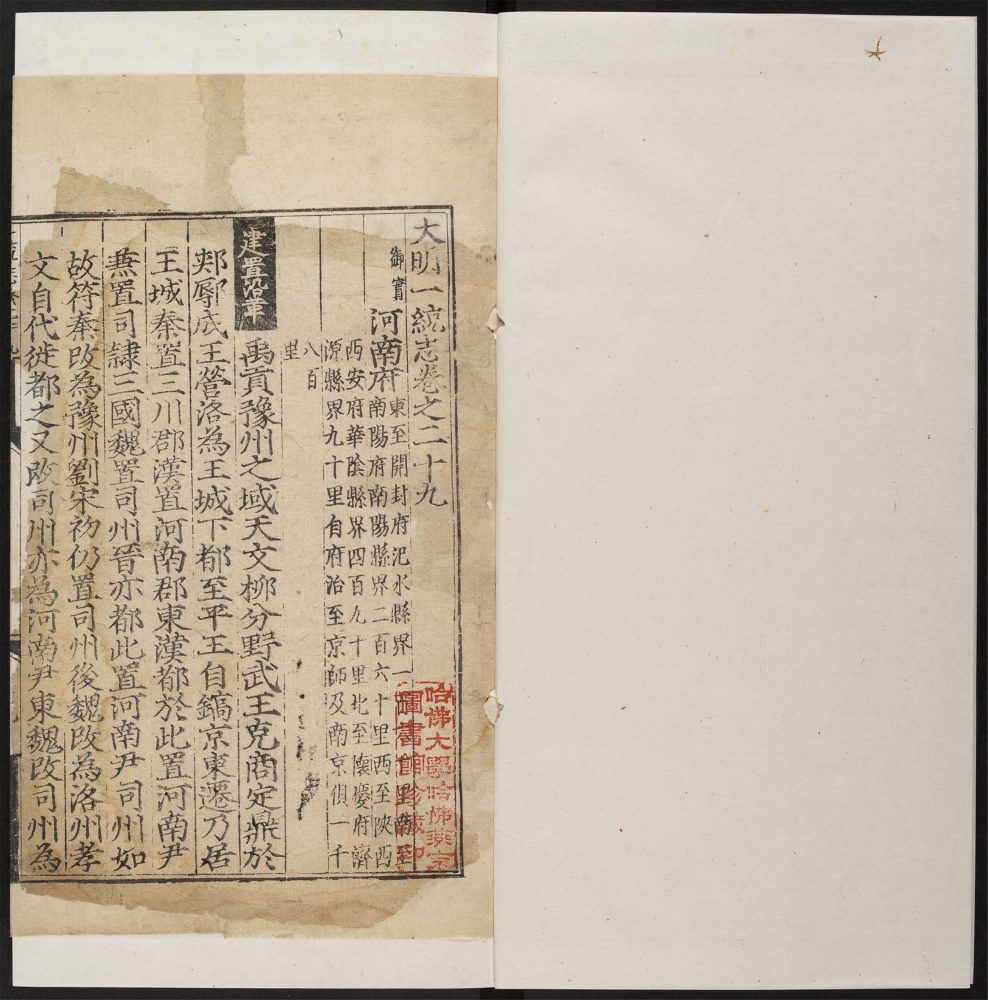 大明一統志卷之二十九
御實
河南府
東至開封府汜水縣界一
里南至
南陽府南陽縣界二百六十里西至陝西
西安府華陰縣界四百九十里北至懷慶府濟
源縣界九十里自府治至京師及南京俱一千
八百
里
建置沿革
禹貢豫州之域天文柳分野武王克商定鼎於
郟鄏成王營洛為王城下都至平王自鎬京東遷乃居
王城秦置三川郡漢置河南郡東漢都於此置河南尹
兼置司隷三國魏置司州晉亦都此置河南尹司州如
故符秦改為豫州劉宋初仍置司州後魏改為洛州孝
文自代徙都之又改司州亦為河南尹東魏改司州為
哈佛大學哈佛燕京
圖書館珍藏印